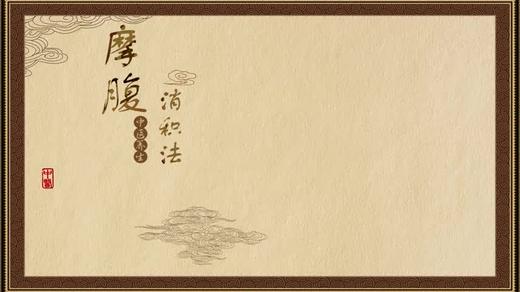 摩腹
中医养生
消积法
中醫